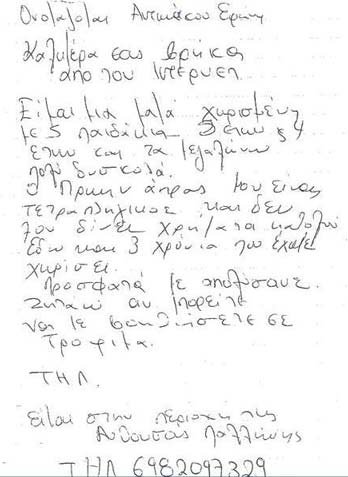 Ονομάζομαι Αντωνάκου Ειρήνη
Καλημέρα σας βρήκα
απο του Ιντερνετ
Είμαι μια μαμά χωρισμένη
με 5 παιδάκια 3 ετων & 4
ετων και τα μεγαλώνω
πολύ δυσκολά.
Ο Πρωην άτρας μου είναι
τετραπληγικος και δεν
μου δίνει χρήματα καθολου
εδω και 3 χρόνια που έχουμε
χωρίσει.
Προσφατά με απολύσανε.
Ζηταω αν μπορείτε
να με βοηθήσετε σε
Τροφιμα.
ΤΗΛ.
είμαι στην περιοχη της
Ανθουσας Παλλήνης
ΤΗΛ 6982097329